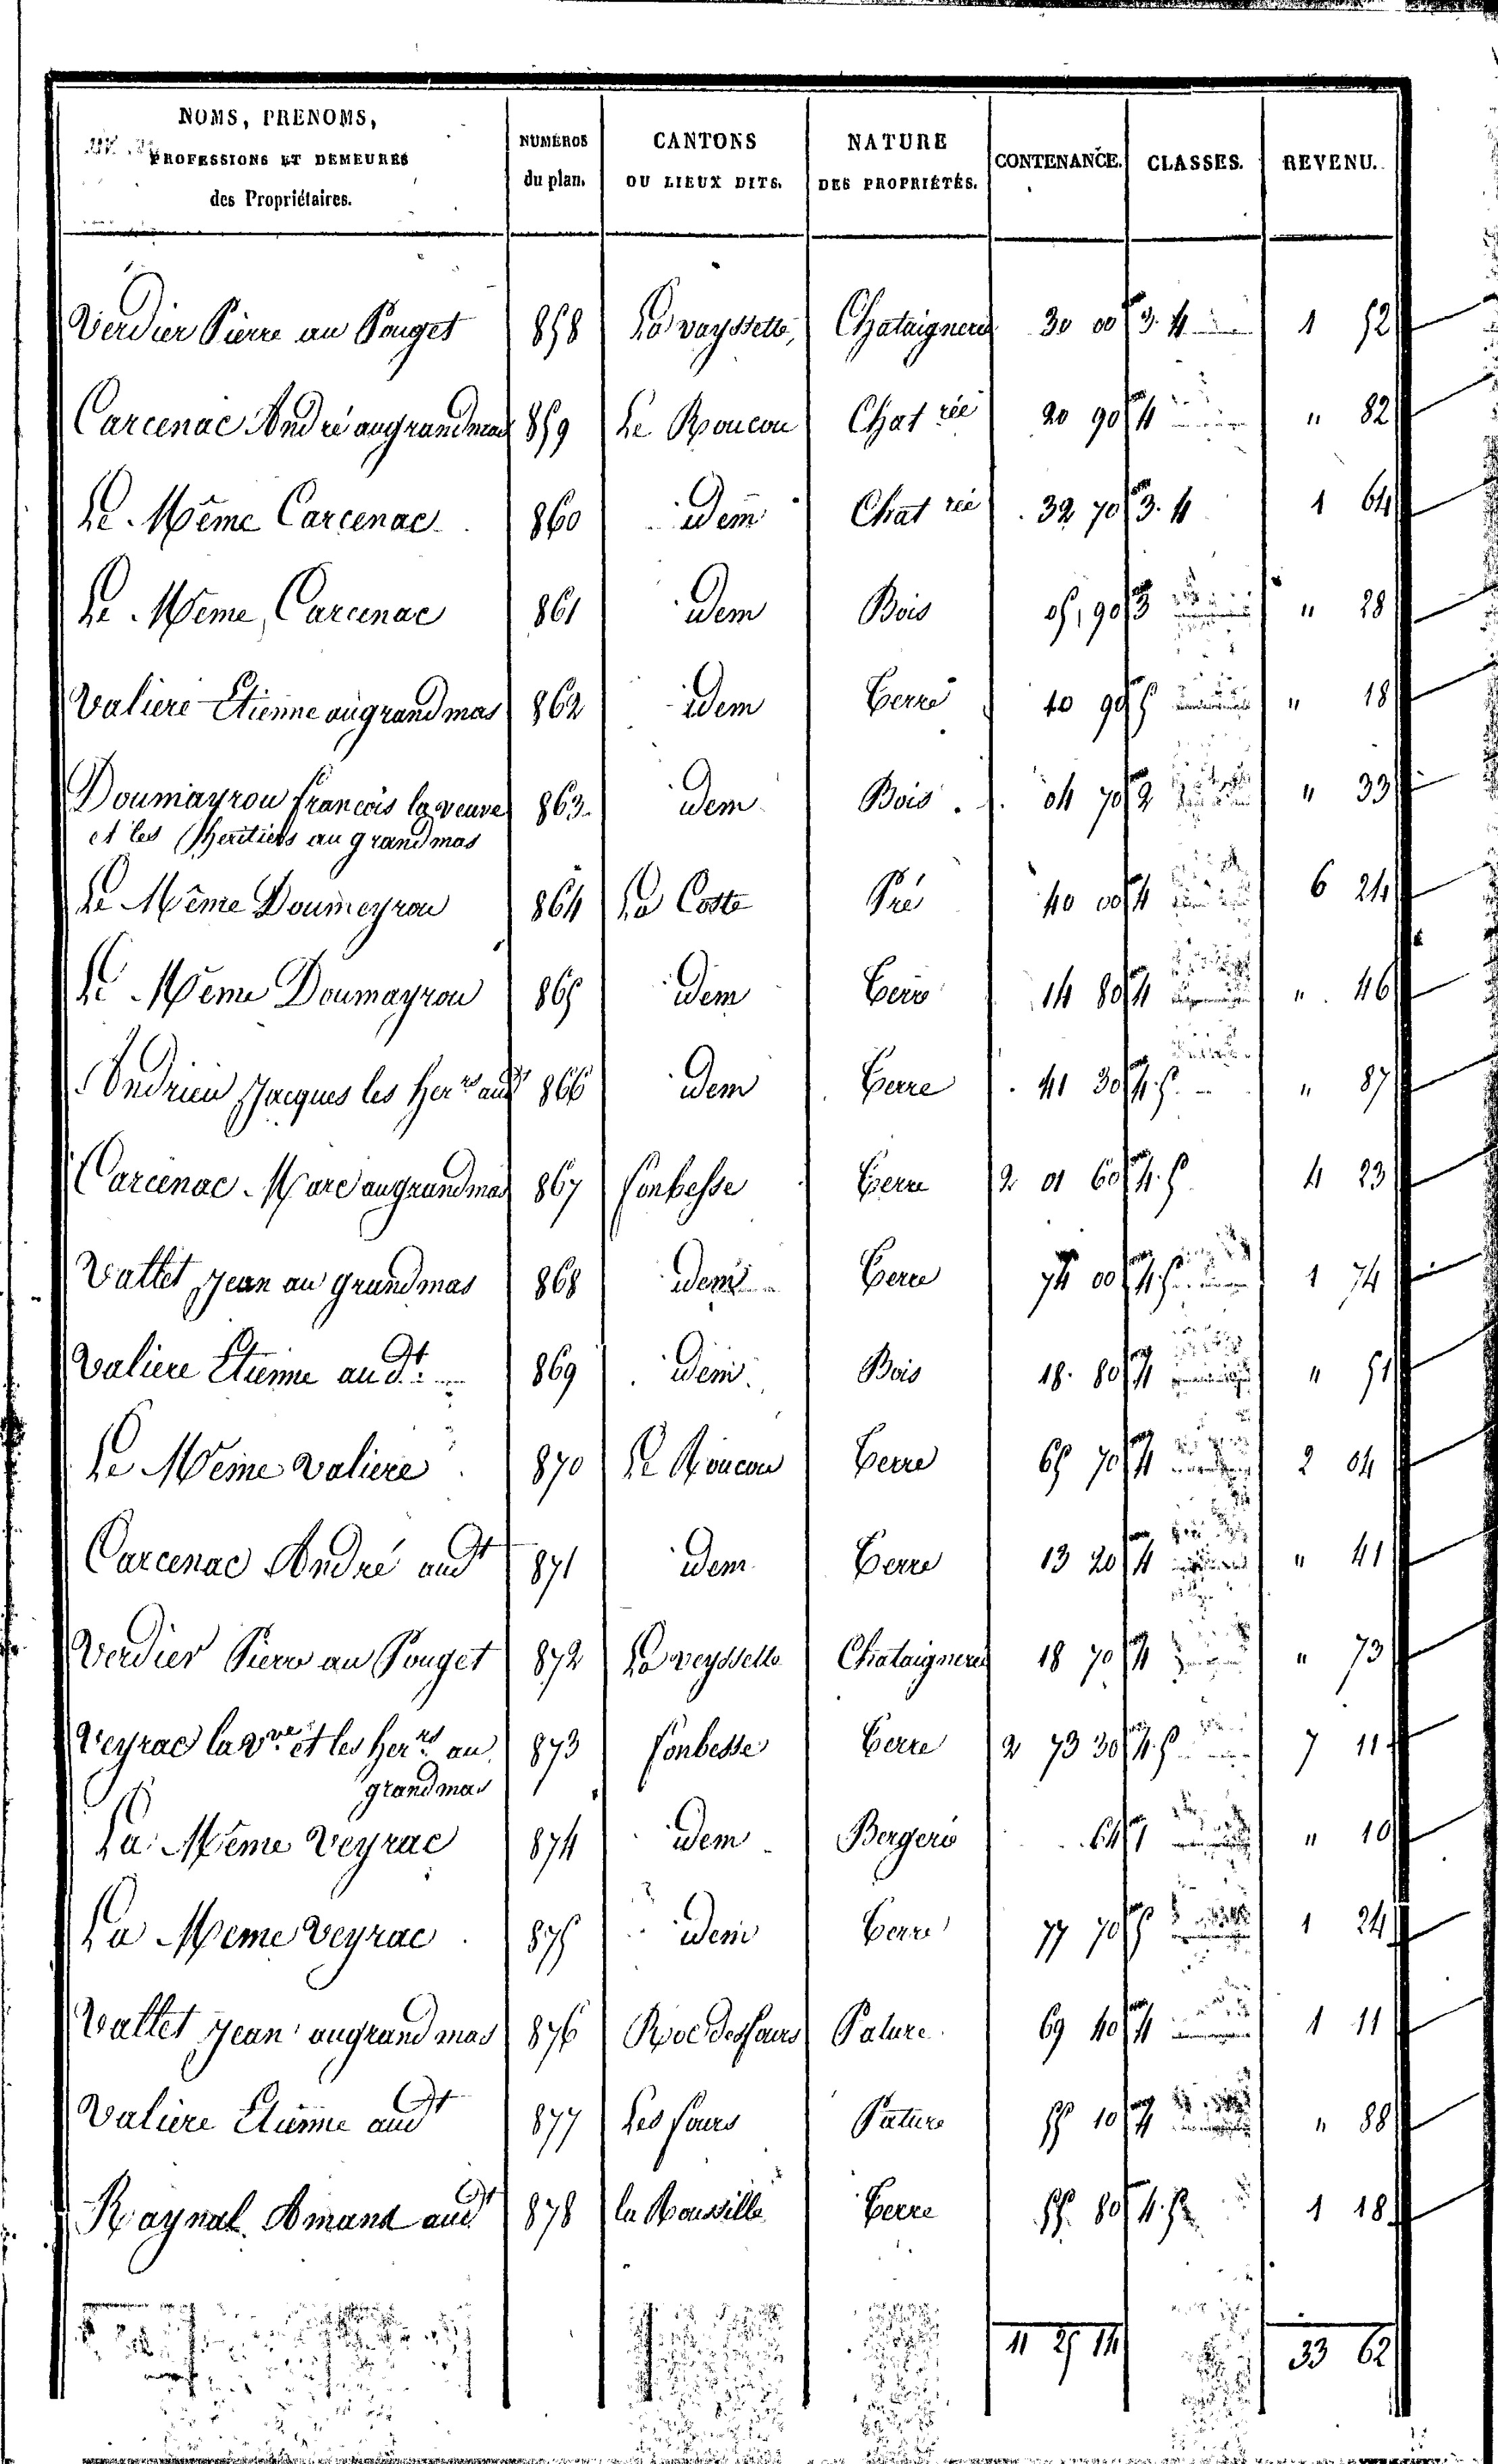 NOMS, PRENOMS, PROFESSIONS ET DEMEURES des Propriétaires. NUMÉROS du plan. CANTONS OU LIEUX DITS. NATURE DES PROPRIÉTÉS. CONTENANCE. CLASSES. REVENU.
Verdier Pierre au Pouget 858 La vayssette, Chataigneraie 30 00 3. 4 1 52
Carcenac André au grandmas 859 Le Roucou Chat rée 20 90 4 " 82
Le Même Carcenac 860 idem Chat rée 32 70 3. 4 1 64
Le Meme, Carcenac 861 idem Bois 05 90 3 " 28
Valiere Etienne au grand mas 862 idem Terre 10 90 5 " 18
Doumayrou francois la veuve 863. idem Bois 04 70 2 " 33
et les heritiers au grand mas
Le Même Doumeyrou 864 La Coste Pré 40 00 4 6 24
Le Même Doumayrou 865 idem Terre 14 80 4 " 46
Andrieu Jacques les Her.rs aud.t 866 idem Terre 41 30 4. 5. " 87
Carcenac Marc au grand mas 867 fonbesse Terre 2 01 60 4. 5 4 23
Vallet Jean au grand mas 868 idem Terre 74 00 4. 5. 1 74
Valiere Etienne aud.t 869 idem Bois 18. 80 4 " 51
Le Meme Valiere 870 Le Roucou Terre 65 70 4 2 04
Carcenac André aud.t 871 idem Terre 13 20 4 " 41
Verdier Pierre au Pouget 872 La veyssette Chataigneraie 18 70 4 " 73
Veyrac la V.ve et les Her.rs au 873 fonbesse Terre 2 73 30 4. 5 7 11
grand mas
La Même Veyrac 874 idem Bergerie 64 1 " 10
La Meme Veyrac 875 idem Terre 77 70 5 1 24
Vallet Jean au grand mas 876 Roc des fours Pature 69 40 4 1 11
Valiere Etienne aud.t 877 Les fours Pature 55 10 4 " 88
Raynal Amand aud.t 878 la Roussille Terre 55. 80 4. 5 1 18
11 25 14 33 62